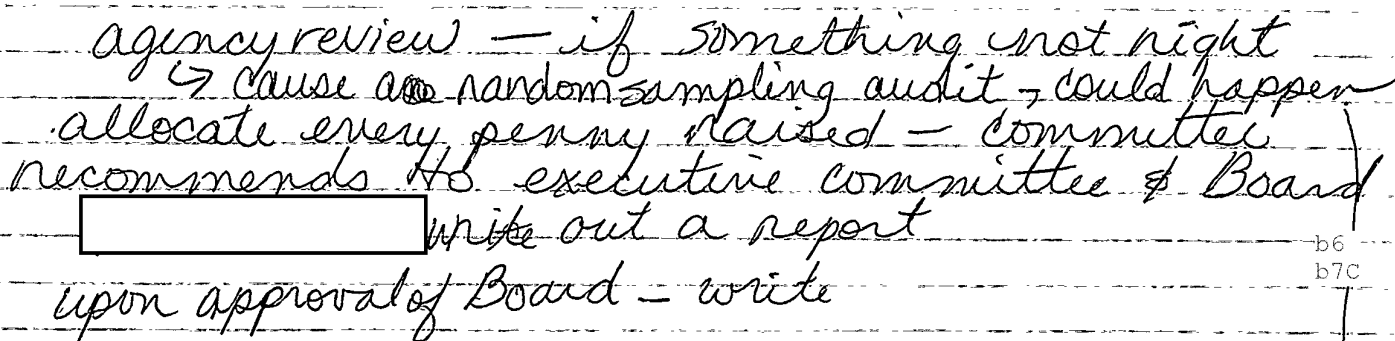 agency review — if something not right
↳ cause a random sampling audit, could happen
allocate every penny raised — committee
recommends to executive committee & Board
write out a report
b6
b7C
upon approval of Board — write